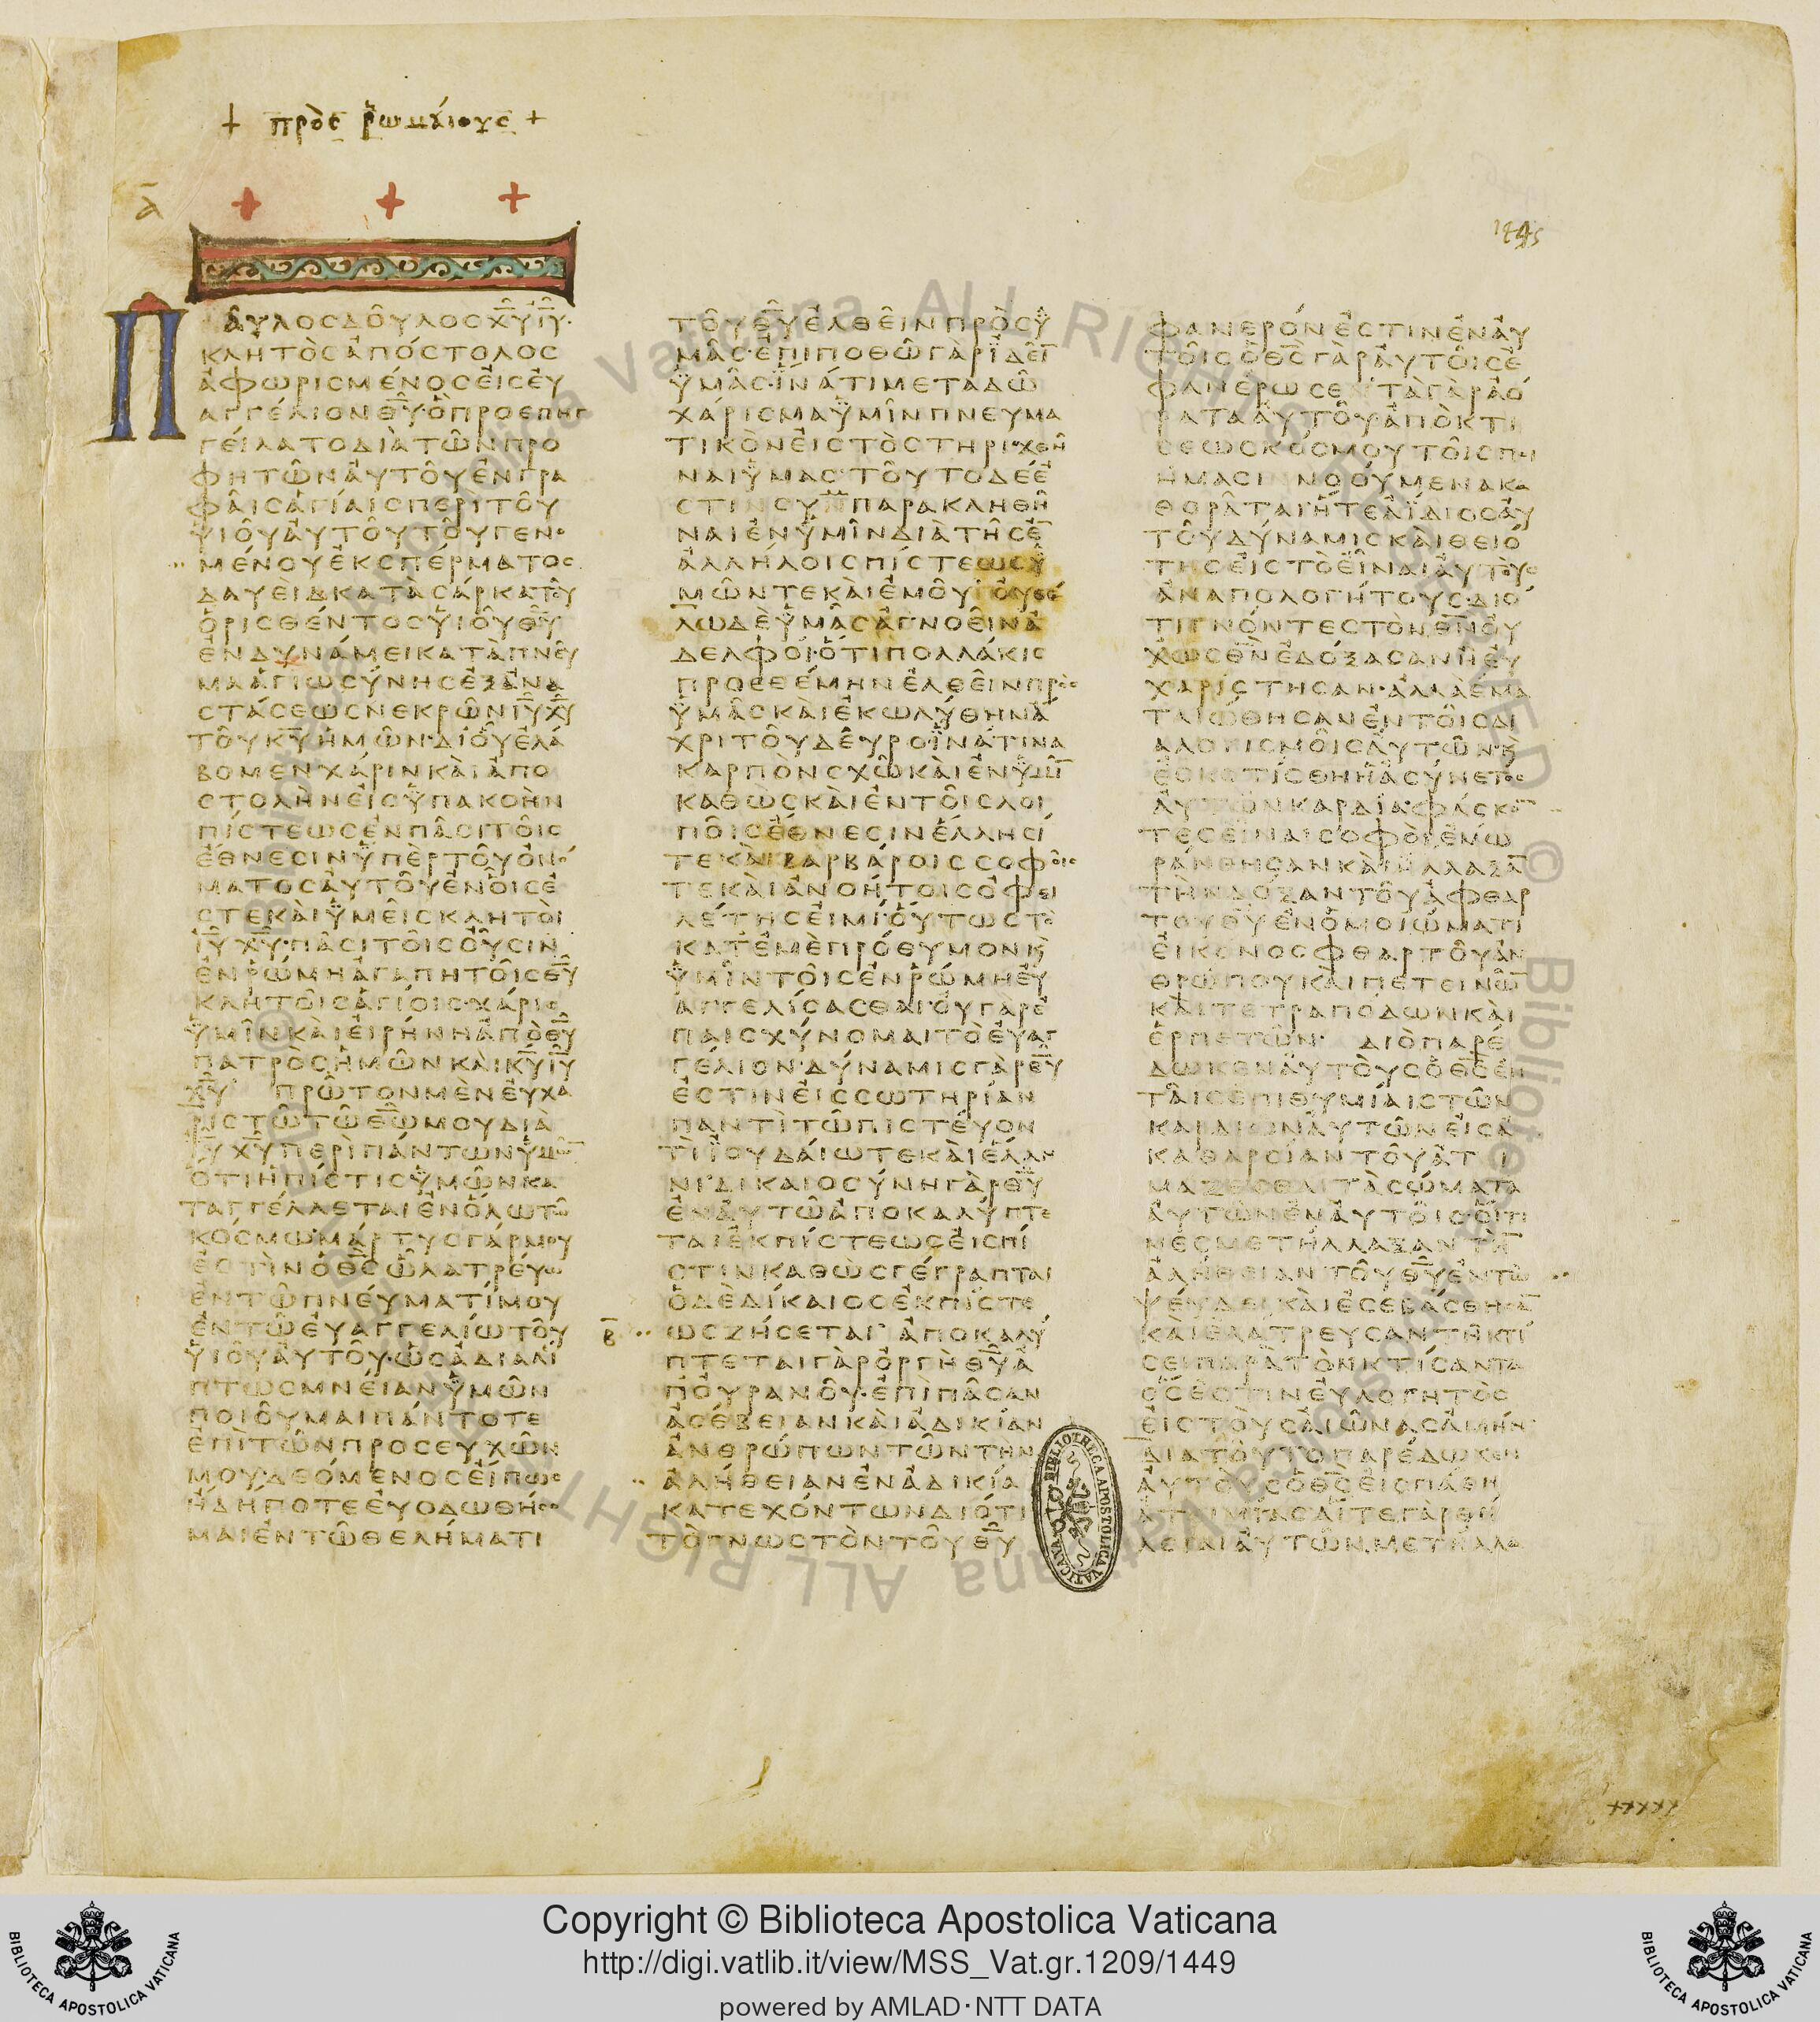 + πρὸς ῥωμαίους +
ᾱ
+ + +
1445
Π
ΑΥΛΟΣΔΟΥΛΟΣΧ̅Υ̅Ι̅Υ̅·
ΚΛΗΤΟΣΑΠΟΣΤΟΛΟΣ
ΑΦΩΡΙΣΜΕΝΟΣΕΙΣΕΥ
ΑΓΓΕΛΙΟΝΘ̅Υ̅·ΟΠΡΟΕΠΗΓ
ΓΕΙΛΑΤΟΔΙΑΤΩΝΠΡΟ
ΦΗΤΩΝΑΥΤΟΥΕΝΓΡΑ
ΦΑΙΣΑΓΙΑΙΣΠΕΡΙΤΟΥ
ΥΙΟΥΑΥΤΟΥΤΟΥΓΕΝΟ
ΜΕΝΟΥΕΚΣΠΕΡΜΑΤΟΣ
ΔΑΥΕΙΔΚΑΤΑΣΑΡΚΑΤΟΥ
ΟΡΙΣΘΕΝΤΟΣΥΙΟΥΘ̅Υ̅
ΕΝΔΥΝΑΜΕΙΚΑΤΑΠΝΕΥ
ΜΑΑΓΙΩΣΥΝΗΣΕΞΑΝΑ
ΣΤΑΣΕΩΣΝΕΚΡΩΝΙ̅Υ̅Χ̅Υ̅
ΤΟΥΚ̅Υ̅ΗΜΩΝ·ΔΙΟΥΕΛΑ
ΒΟΜΕΝΧΑΡΙΝΚΑΙΑΠΟ
ΣΤΟΛΗΝΕΙΣΥΠΑΚΟΗΝ
ΠΙΣΤΕΩΣΕΝΠΑΣΙΤΟΙΣ
ΕΘΝΕΣΙΝΥΠΕΡΤΟΥΟΝΟ
ΜΑΤΟΣΑΥΤΟΥΕΝΟΙΣΕ
ΣΤΕΚΑΙΥΜΕΙΣΚΛΗΤΟΙ
Ι̅Υ̅Χ̅Υ̅·ΠΑΣΙΤΟΙΣΟΥΣΙΝ
ΕΝΡΩΜΗΑΓΑΠΗΤΟΙΣΘ̅Υ̅
ΚΛΗΤΟΙΣΑΓΙΟΙΣ·ΧΑΡΙΣ
ΥΜΙΝΚΑΙΕΙΡΗΝΗΑΠΟΘ̅Υ̅
ΠΑΤΡΟΣΗΜΩΝΚΑΙΚ̅Υ̅Ι̅Υ̅
Χ̅Υ̅ ΠΡΩΤΟΝΜΕΝΕΥΧΑ
ΡΙΣΤΩΤΩΘ̅Ω̅ΜΟΥΔΙΑ
Ι̅Υ̅Χ̅Υ̅ΠΕΡΙΠΑΝΤΩΝΥΜΩ̅
ΟΤΙΗΠΙΣΤΙΣΥΜΩΝΚΑ
ΤΑΓΓΕΛΛΕΤΑΙΕΝΟΛΩΤΩ
ΚΟΣΜΩ·ΜΑΡΤΥΣΓΑΡΜΟΥ
ΕΣΤΙΝΟΘ̅Σ̅ΩΛΑΤΡΕΥΩ
ΕΝΤΩΠΝΕΥΜΑΤΙΜΟΥ
ΕΝΤΩΕΥΑΓΓΕΛΙΩΤΟΥ
ΥΙΟΥΑΥΤΟΥ·ΩΣΑΔΙΑΛΙ
ΠΤΩΣΜΝΕΙΑΝΥΜΩΝ
ΠΟΙΟΥΜΑΙΠΑΝΤΟΤΕ
ΕΠΙΤΩΝΠΡΟΣΕΥΧΩΝ
ΜΟΥΔΕΟΜΕΝΟΣΕΙΠΩΣ
ΗΔΗΠΟΤΕΕΥΟΔΩΘΗΣΟ
ΜΑΙΕΝΤΩΘΕΛΗΜΑΤΙ
ΤΟΥΘ̅Υ̅ΕΛΘΕΙΝΠΡΟΣΥ
ΜΑΣ·ΕΠΙΠΟΘΩΓΑΡΙΔΕΙ̅
ΥΜΑΣ·ΙΝΑΤΙΜΕΤΑΔΩ
ΧΑΡΙΣΜΑΥΜΙΝΠΝΕΥΜΑ
ΤΙΚΟΝΕΙΣΤΟΣΤΗΡΙΧΘΗ
ΝΑΙΥΜΑΣ·ΤΟΥΤΟΔΕΕ
ΣΤΙΝΣΥΜΠΑΡΑΚΛΗΘΗ
ΝΑΙΕΝΥΜΙΝΔΙΑΤΗΣΕ̅
ΑΛΛΗΛΟΙΣΠΙΣΤΕΩΣΥ
ΜΩΝΤΕΚΑΙΕΜΟΥ·ΟΥΘΕ
ΛΩΔΕΥΜΑΣΑΓΝΟΕΙΝΑ
ΔΕΛΦΟΙ·ΟΤΙΠΟΛΛΑΚΙΣ
ΠΡΟΕΘΕΜΗΝΕΛΘΕΙΝΠΡΟΣ
ΥΜΑΣΚΑΙΕΚΩΛΥΘΗΝΑ
ΧΡΙΤΟΥΔΕΥΡΟ·ΙΝΑΤΙΝΑ
ΚΑΡΠΟΝΣΧΩΚΑΙΕΝΥΜΙ̅
ΚΑΘΩΣΚΑΙΕΝΤΟΙΣΛΟΙ
ΠΟΙΣΕΘΝΕΣΙΝΕΛΛΗΣΙ
ΤΕΚΑΙΒΑΡΒΑΡΟΙΣΣΟΦΟΙΣ
ΤΕΚΑΙΑΝΟΗΤΟΙΣΟΦΕΙ
ΛΕΤΗΣΕΙΜΙ·ΟΥΤΩΣΤΟ
ΚΑΤΕΜΕΠΡΟΘΥΜΟΝΚ
ΥΜΙΝΤΟΙΣΕΝΡΩΜΗΕΥ
ΑΓΓΕΛΙΣΑΣΘΑΙ·ΟΥΓΑΡΕ
ΠΑΙΣΧΥΝΟΜΑΙΤΟΕΥΑΓ
ΓΕΛΙΟΝ·ΔΥΝΑΜΙΣΓΑΡΘ̅Υ̅
ΕΣΤΙΝΕΙΣΣΩΤΗΡΙΑΝ
ΠΑΝΤΙΤΩΠΙΣΤΕΥΟΝ
ΤΙΙΟΥΔΑΙΩΤΕΚΑΙΕΛΛΗ
ΝΙ·ΔΙΚΑΙΟΣΥΝΗΓΑΡΘ̅Υ̅
ΕΝΑΥΤΩΑΠΟΚΑΛΥΠΤΕ
ΤΑΙΕΚΠΙΣΤΕΩΣΕΙΣΠΙ
ΣΤΙΝΚΑΘΩΣΓΕΓΡΑΠΤΑΙ
ΟΔΕΔΙΚΑΙΟΣΕΚΠΙΣΤΕ
Β̅ ΩΣΖΗΣΕΤΑΙ ΑΠΟΚΑΛΥ
ΠΤΕΤΑΙΓΑΡΟΡΓΗΘ̅Υ̅Α
ΠΟΥΡΑΝΟΥ·ΕΠΙΠΑΣΑΝ
ΑΣΕΒΕΙΑΝΚΑΙΑΔΙΚΙΑΝ
ΑΝΘΡΩΠΩΝΤΩΝΤΗΝ
ΑΛΗΘΕΙΑΝΕΝΑΔΙΚΙΑ
ΚΑΤΕΧΟΝΤΩΝΔΙΟΤΙ
ΤΟΓΝΩΣΤΟΝΤΟΥΘ̅Υ̅
ΦΑΝΕΡΟΝΕΣΤΙΝΕΝΑΥ
ΤΟΙΣΟΘ̅Σ̅ΓΑΡΑΥΤΟΙΣΕ
ΦΑΝΕΡΩΣΕ ΤΑΓΑΡΑΟ
ΡΑΤΑΑΥΤΟΥΑΠΟΚΤΙ
ΣΕΩΣΚΟΣΜΟΥΤΟΙΣΠΟΙ
ΗΜΑΣΙ ΝΟΟΥΜΕΝΑΚΑ
ΘΟΡΑΤΑΙΗΤΕΑΙΔΙΟΣΑΥ
ΤΟΥΔΥΝΑΜΙΣΚΑΙΘΕΙΟ
ΤΗΣΕΙΣΤΟΕΙΝΑΙΑΥΤΟΥΣ
ΑΝΑΠΟΛΟΓΗΤΟΥΣ·ΔΙΟ
ΤΙΓΝΟΝΤΕΣΤΟΝΘ̅Ν̅ΟΥ
ΧΩΣΘ̅Ν̅ΕΔΟΞΑΣΑΝΗΕΥ
ΧΑΡΙΣΤΗΣΑΝ·ΑΛΛΑΕΜΑ
ΤΑΙΩΘΗΣΑΝΕΝΤΟΙΣΔΙ
ΑΛΟΓΙΣΜΟΙΣΑΥΤΩΝΚ
ΕΣΚΟΤΙΣΘΗΗΑΣΥΝΕΤΟΣ
ΑΥΤΩΝΚΑΡΔΙΑ·ΦΑΣΚΟ̅
ΤΕΣΕΙΝΑΙΣΟΦΟΙΕΜΩ
ΡΑΝΘΗΣΑΝΚΑΙΗΛΛΑΞΑ̅
ΤΗΝΔΟΞΑΝΤΟΥΑΦΘΑΡ
ΤΟΥΘ̅Υ̅ΕΝΟΜΟΙΩΜΑΤΙ
ΕΙΚΟΝΟΣΦΘΑΡΤΟΥΑΝ
ΘΡΩΠΟΥΚΑΙΠΕΤΕΙΝΩ̅
ΚΑΙΤΕΤΡΑΠΟΔΩΝΚΑΙ
ΕΡΠΕΤΩΝ· ΔΙΟΠΑΡΕ
ΔΩΚΕΝΑΥΤΟΥΣΟΘ̅Σ̅ΕΝ
ΤΑΙΣΕΠΙΘΥΜΙΑΙΣΤΩΝ
ΚΑΡΔΙΩΝΑΥΤΩΝΕΙΣΑ
ΚΑΘΑΡΣΙΑΝΤΟΥΑΤΙ
ΜΑΖΕΣΘΑΙΤΑΣΩΜΑΤΑ
ΑΥΤΩΝΕΝΑΥΤΟΙΣΟΙΤΙ
ΝΕΣΜΕΤΗΛΛΑΞΑΝΤΗ̅
ΑΛΗΘΕΙΑΝΤΟΥΘ̅Υ̅ΕΝΤΩ
ΨΕΥΔΕΙΚΑΙΕΣΕΒΑΣΘΗΣΑ̅
ΚΑΙΕΛΑΤΡΕΥΣΑΝΤΗΚΤΙ
ΣΕΙΠΑΡΑΤΟΝΚΤΙΣΑΝΤΑ
ΟΣΕΣΤΙΝΕΥΛΟΓΗΤΟΣ
ΕΙΣΤΟΥΣΑΙΩΝΑΣΑΜΗΝ
ΔΙΑΤΟΥΤΟΠΑΡΕΔΩΚΕΝ
ΑΥΤΟΥΣΟΘ̅Σ̅ΕΙΣΠΑΘΗ
ΑΤΙΜΙΑΣΑΙΤΕΓΑΡΘΗ
ΛΕΙΑΙΑΥΤΩΝΜΕΤΗΛΛΑ
BIBLIOTHECA APOSTOLICA VATICANA
xxxxx
Copyright © Biblioteca Apostolica Vaticana
http://digi.vatlib.it/view/MSS_Vat.gr.1209/1449
powered by AMLAD·NTT DATA
BIBLIOTECA APOSTOLICA VATICANA
BIBLIOTECA APOSTOLICA VATICANA